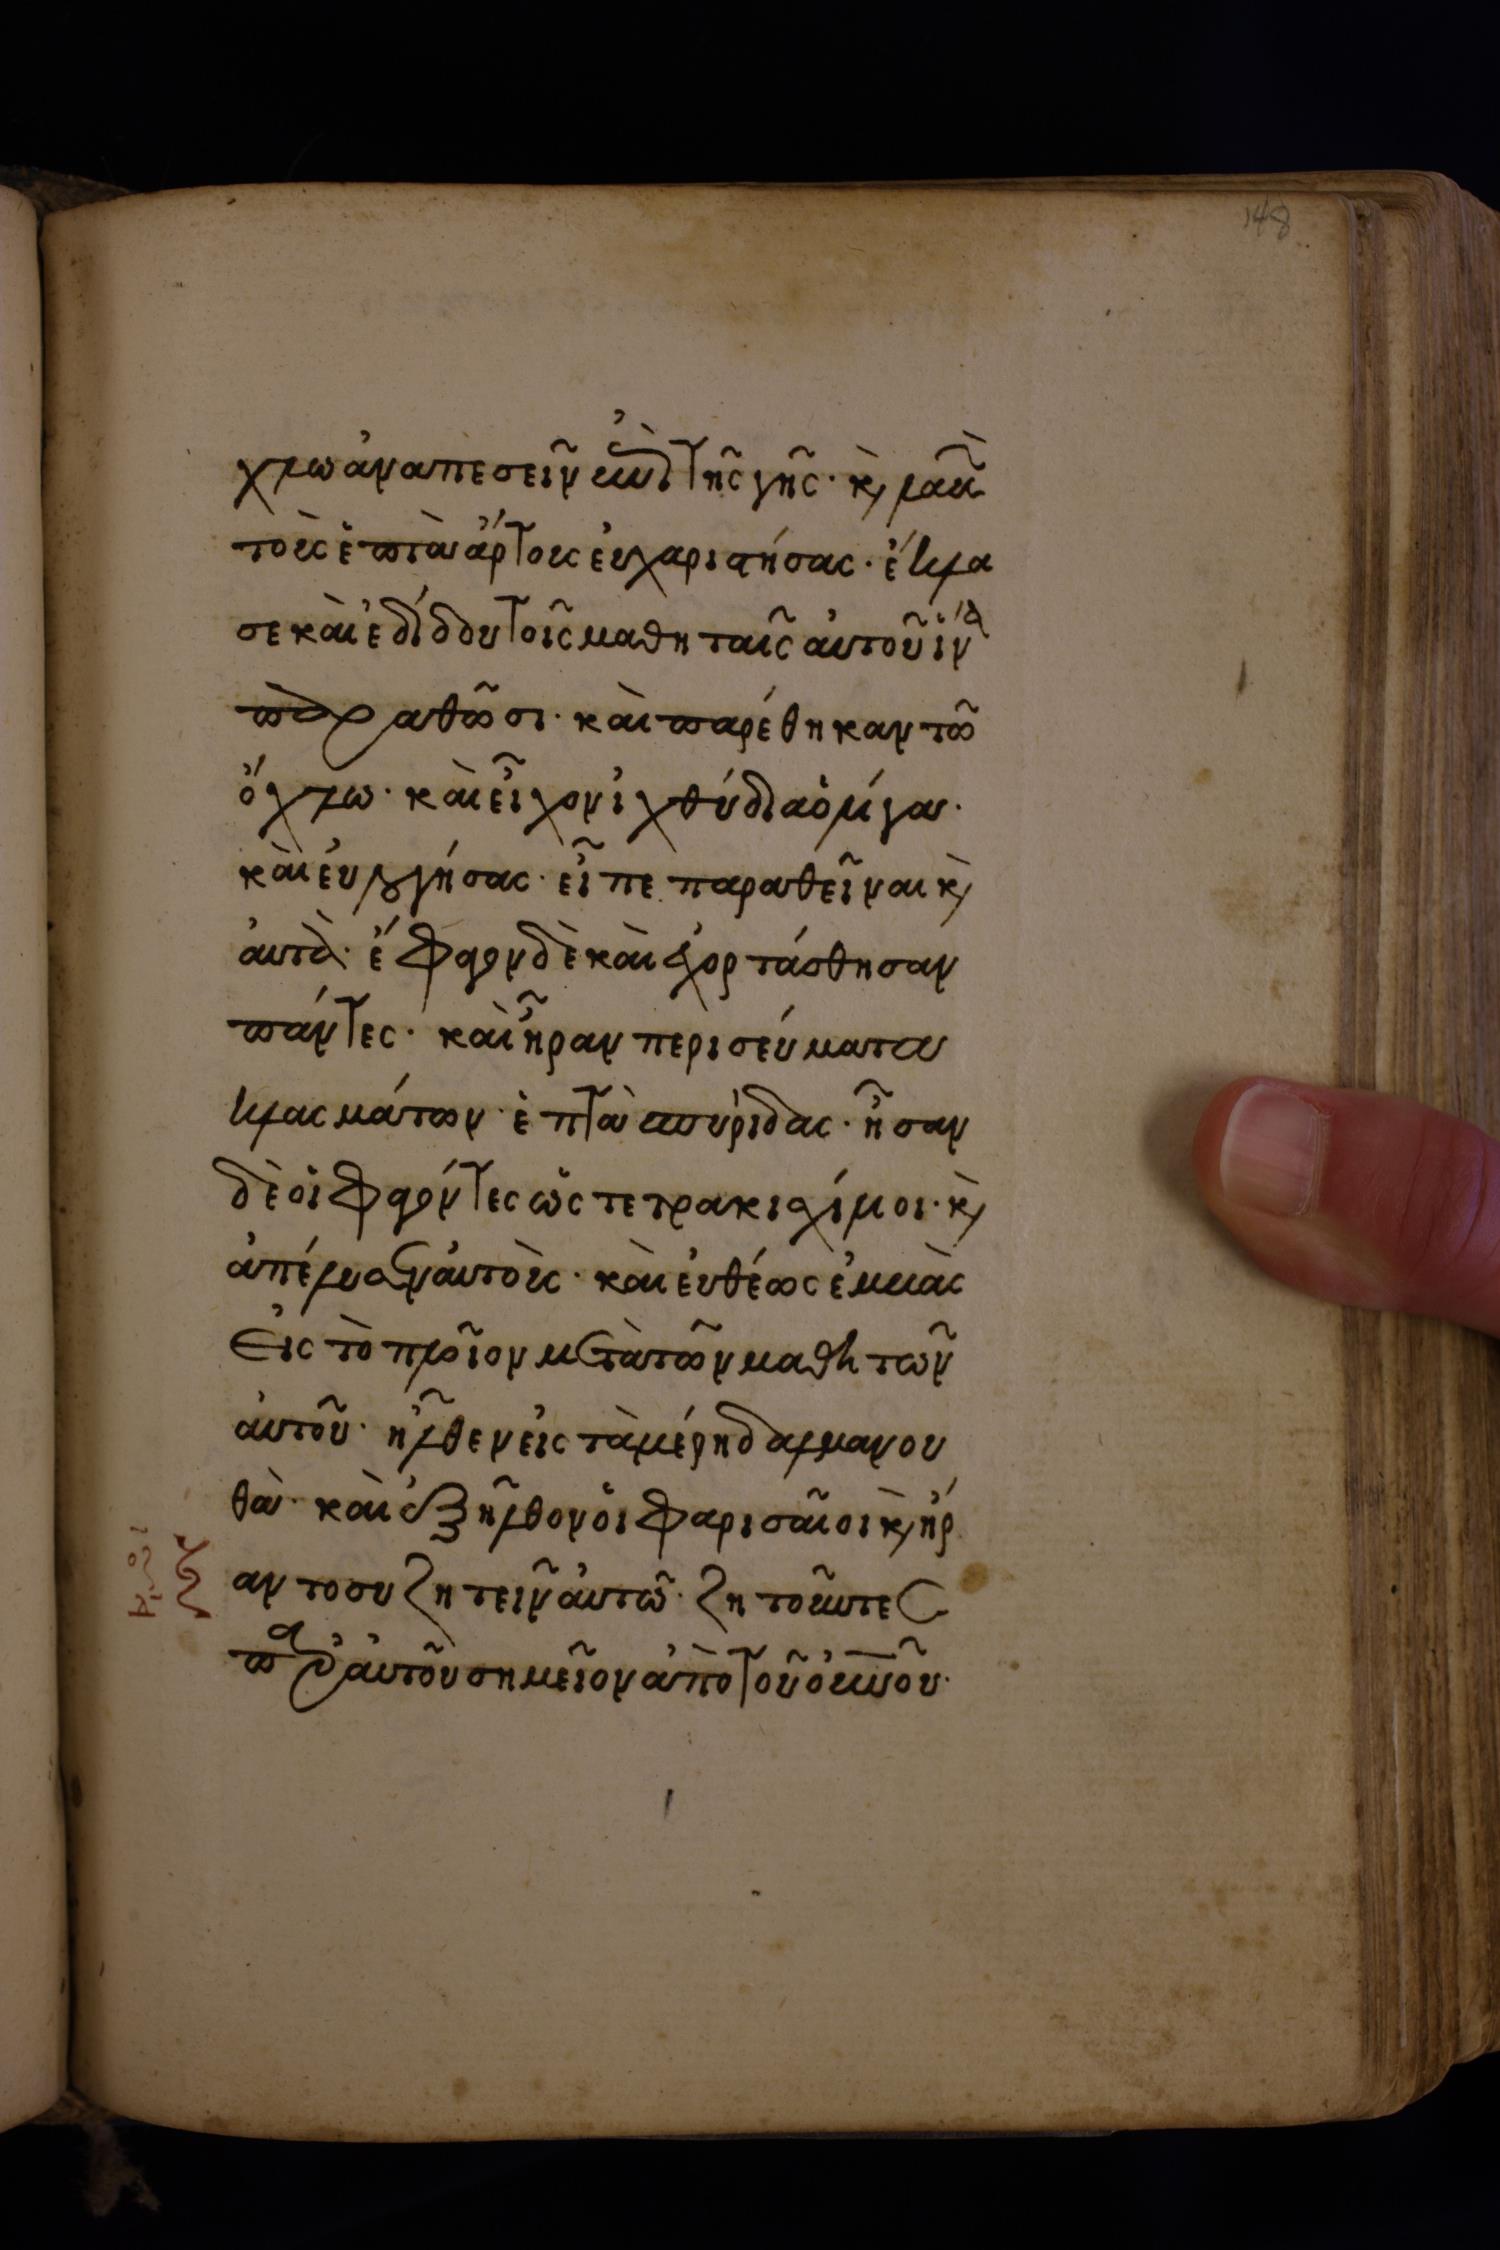 148
χλω ἀναπεσεῖν ἐπὶ τῆς γῆς· κ λαβὼν
τοὺς ἑπτὰ ἄρτους εὐχαριστήσας· ἔκλα
σε καὶ ἐδίδου τοῖς μαθηταῖς αὐτοῦ ἵνα
παραθῶσι· καὶ παρέθηκαν τῶ
ὄχλω· καὶ εἶχον ἰχθύδια ὀλίγα·
καὶ εὐλογήσας· εἶπε παραθεῖναι κ
αὐτὰ· ἔφαγον δὲ καὶ ἐχορτάσθησαν
πάντες· καὶ ἦραν περισεύματα
κλασμάτων· ἑπτὰ σπυρίδας· ἦσαν
δὲ οἱ φαγόντες ὡς τετρακισχίλιοι· κ
ἀπέλυσεν αὐτοὺς· καὶ εὐθέως ἐμβὰς
εἰς τὸ πλοῖον μετὰ τῶν μαθητῶν
αὐτοῦ· ἦλθεν εἰς τὰ μέρη δαλμανου
θὰ· καὶ ἐξῆλθον οἱ φαρισαῖοι κ ἤρ
αντο συζητεῖν αὐτῶ· ζητοῦντες
παρ αὐτοῦ σημεῖον ἀπὸ τοῦ οὐνοῦ·